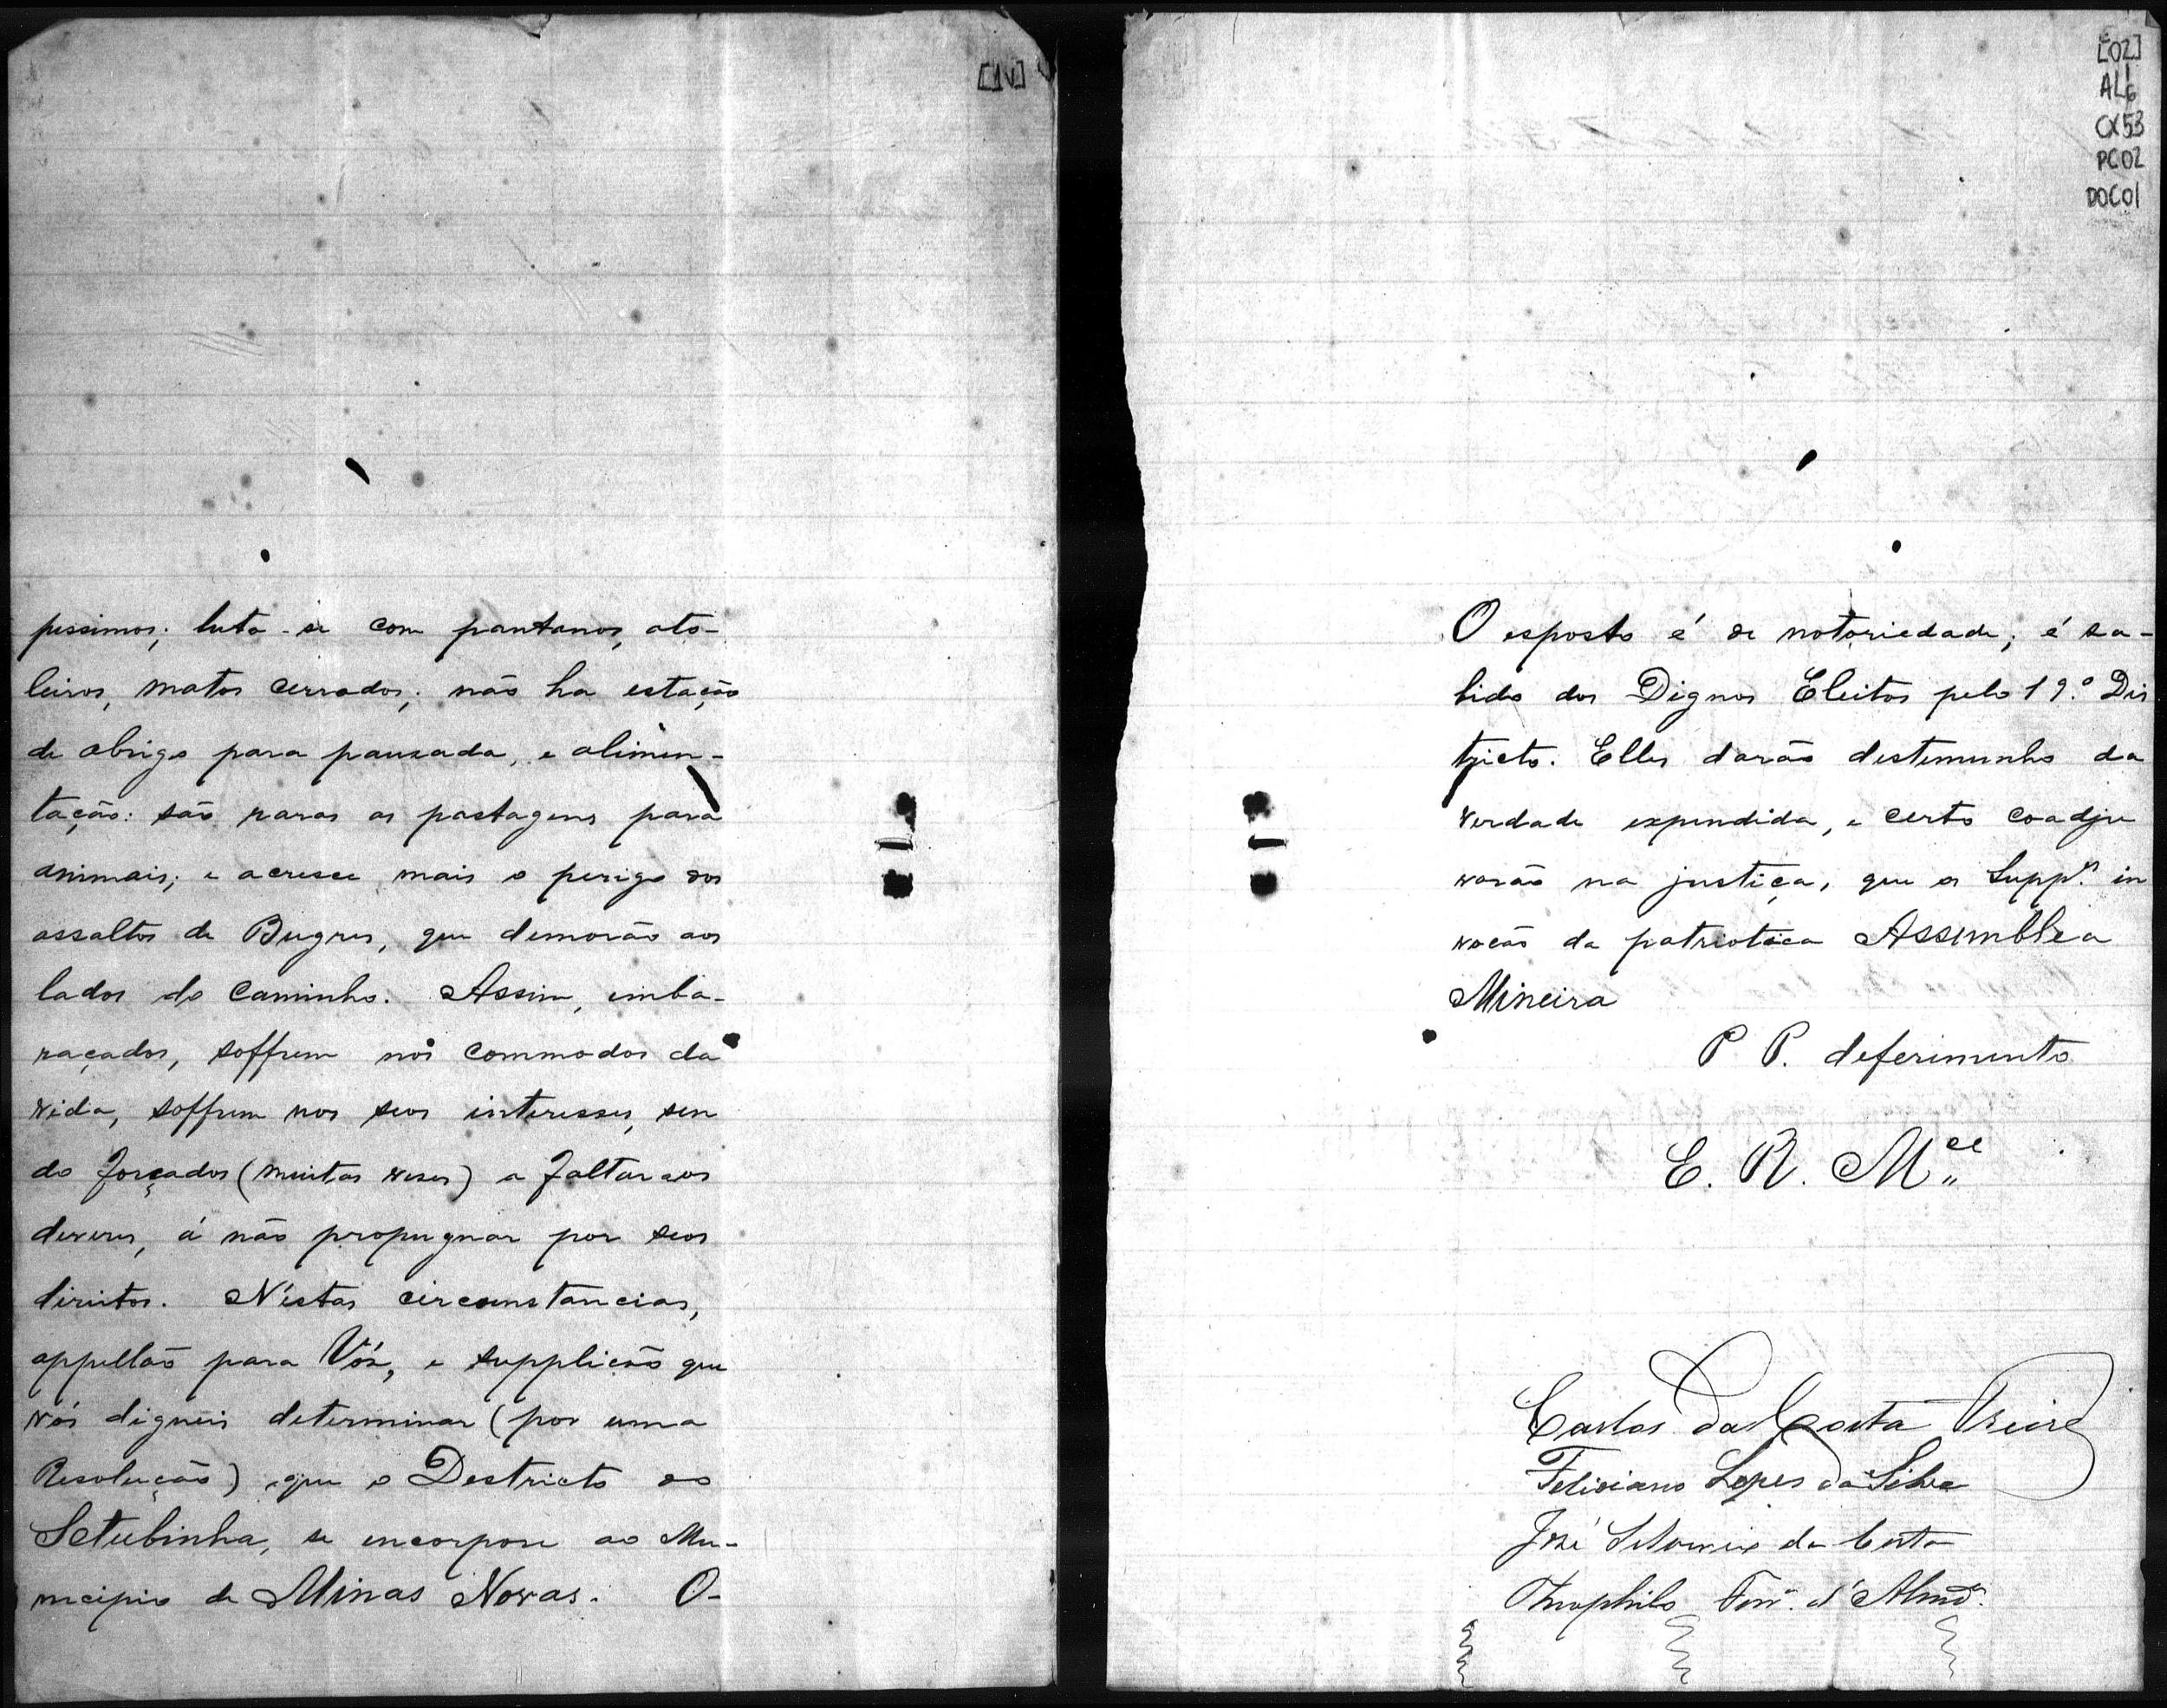 [1v]
pessimos; luta-se com pantanos, ato-
leiros, matos cerrados; não ha estação
de abrigo para pauzada, e alimen-
tação: são raras as pastagens para
animais; e acresce mais o perigo dos
assaltos de Bugres, que demorão aos
lados do Caminho. Assim, emba-
raçados, soffrem nos commodos da
vida, soffrem nos seos interesses, sen
do forçados (muitas veses) a faltar aos
deveres, á não propugnar por seos
direitos. N'éstas circunstancias,
appellão para Vós, e supplicão que
vós digneis determinar (por uma
Resolução) que o Destricto do
Setubinha, se encorpore ao Mu-
nicipio de Minas Novas. O-
[02]
AL
CX53
PC02
DOC01
O esposto é de notoriedade; é sa-
bido dos Dignos Eleitos pelo 19.º Dis
tricto. Elles darão destemunho da
verdade expendida, e certo coadju
varão na justiça, que os Supp.es in
vocão da patriotica Assemblea
Mineira
P P. deferimento
E. R. M.ce
Carlos da Costa Freire
Feliciano Lopes da Silva
José da Costa
Theophilo Ferr.ª d'Almd.ª